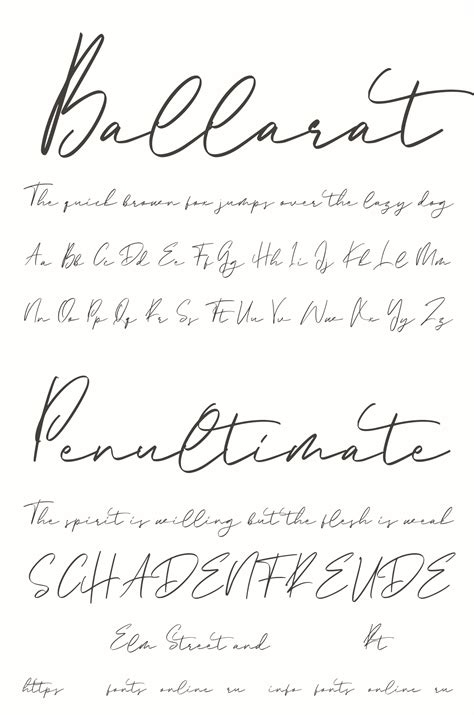 Ballarat
The quick brown fox jumps over the lazy dog
Aa Bb Cc Dd Ee Ff Gg Hh Ii Jj Kk Ll Mm
Nn Oo Pp Qq Rr Ss Tt Uu Vv Ww Xx Yy Zz
Penultimate
The spirit is willing but the flesh is weak
SCHADENFREUDE
Elm Street and Rt
https fonts online ru info fonts online ru